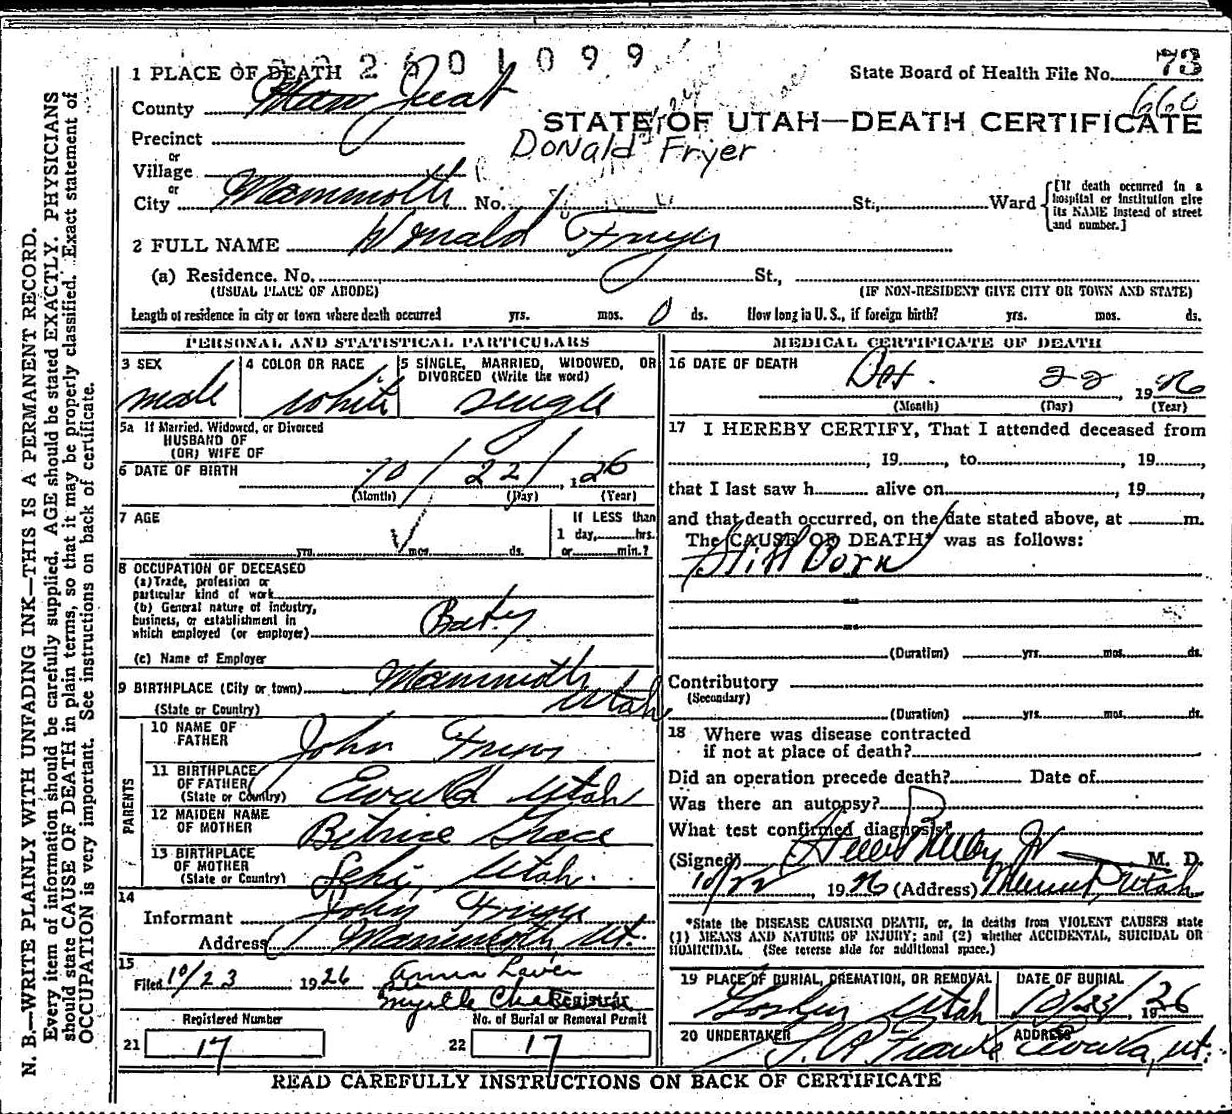 2 6 0 1 0 9 9
73
1 PLACE OF DEATH
State Board of Health File No.
660
County Juab
STATE OF UTAH—DEATH CERTIFICATE
Precinct
Donald Fryer
or
Village
or
City Mammoth No. St., Ward
[If death occurred in a hospital or institution give its NAME instead of street and number.]
2 FULL NAME Donald Fryer
(a) Residence. No. St.,
(USUAL PLACE OF ABODE) (IF NON-RESIDENT GIVE CITY OR TOWN AND STATE)
Length of residence in city or town where death occurred yrs. mos. 0 ds. How long in U. S., if foreign birth? yrs. mos. ds.
PERSONAL AND STATISTICAL PARTICULARS
3 SEX
male
4 COLOR OR RACE
white
5 SINGLE, MARRIED, WIDOWED, OR
DIVORCED (Write the word)
single
5a If Married, Widowed, or Divorced
HUSBAND OF
(OR) WIFE OF
6 DATE OF BIRTH 10 / 22 / , 1 26
(Month) (Day) (Year)
7 AGE
yrs. mos. ds.
If LESS than
1 day, hrs.
or min.?
8 OCCUPATION OF DECEASED
(a) Trade, profession or
particular kind of work
(b) General nature of industry,
business, or establishment in
which employed (or employer) Baby
(c) Name of Employer
9 BIRTHPLACE (City or town) Mammoth
(State or Country) Utah
PARENTS
10 NAME OF
FATHER John Fryer
11 BIRTHPLACE
OF FATHER
(State or Country) Utah
12 MAIDEN NAME
OF MOTHER Betrice Grace
13 BIRTHPLACE
OF MOTHER
(State or Country) Lehi, Utah.
14
Informant John Fryer
Address Mammoth Ut.
15
Filed 10/23 1926
Myrtle
Registrar
Registered Number
21 17
No. of Burial or Removal Permit
22 17
MEDICAL CERTIFICATE OF DEATH
16 DATE OF DEATH
Oct. 22 , 1926
(Month) (Day) (Year)
17 I HEREBY CERTIFY, That I attended deceased from
, 19 , to , 19 ,
that I last saw h alive on , 19 ,
and that death occurred, on the date stated above, at m.
The CAUSE OF DEATH* was as follows:
Still Born
(Duration) yrs. mos. ds.
Contributory
(Secondary)
(Duration) yrs. mos. ds.
18 Where was disease contracted
if not at place of death?
Did an operation precede death? Date of
Was there an autopsy?
What test confirmed diagnosis?
(Signed) M. D.
10/22 1926 (Address) Utah
*State the DISEASE CAUSING DEATH, or, in deaths from VIOLENT CAUSES state
(1) MEANS AND NATURE OF INJURY; and (2) whether ACCIDENTAL, SUICIDAL OR
HOMICIDAL. (See reverse side for additional space.)
19 PLACE OF BURIAL, CREMATION, OR REMOVAL
Goshen Utah
DATE OF BURIAL
10/23/ , 1926
20 UNDERTAKER
ADDRESS
Eureka, Ut.
READ CAREFULLY INSTRUCTIONS ON BACK OF CERTIFICATE
N. B.—WRITE PLAINLY WITH UNFADING INK—THIS IS A PERMANENT RECORD.
Every item of information should be carefully supplied. AGE should be stated EXACTLY. PHYSICIANS
should state CAUSE OF DEATH in plain terms, so that it may be properly classified. Exact statement of
OCCUPATION is very important. See instructions on back of certificate.